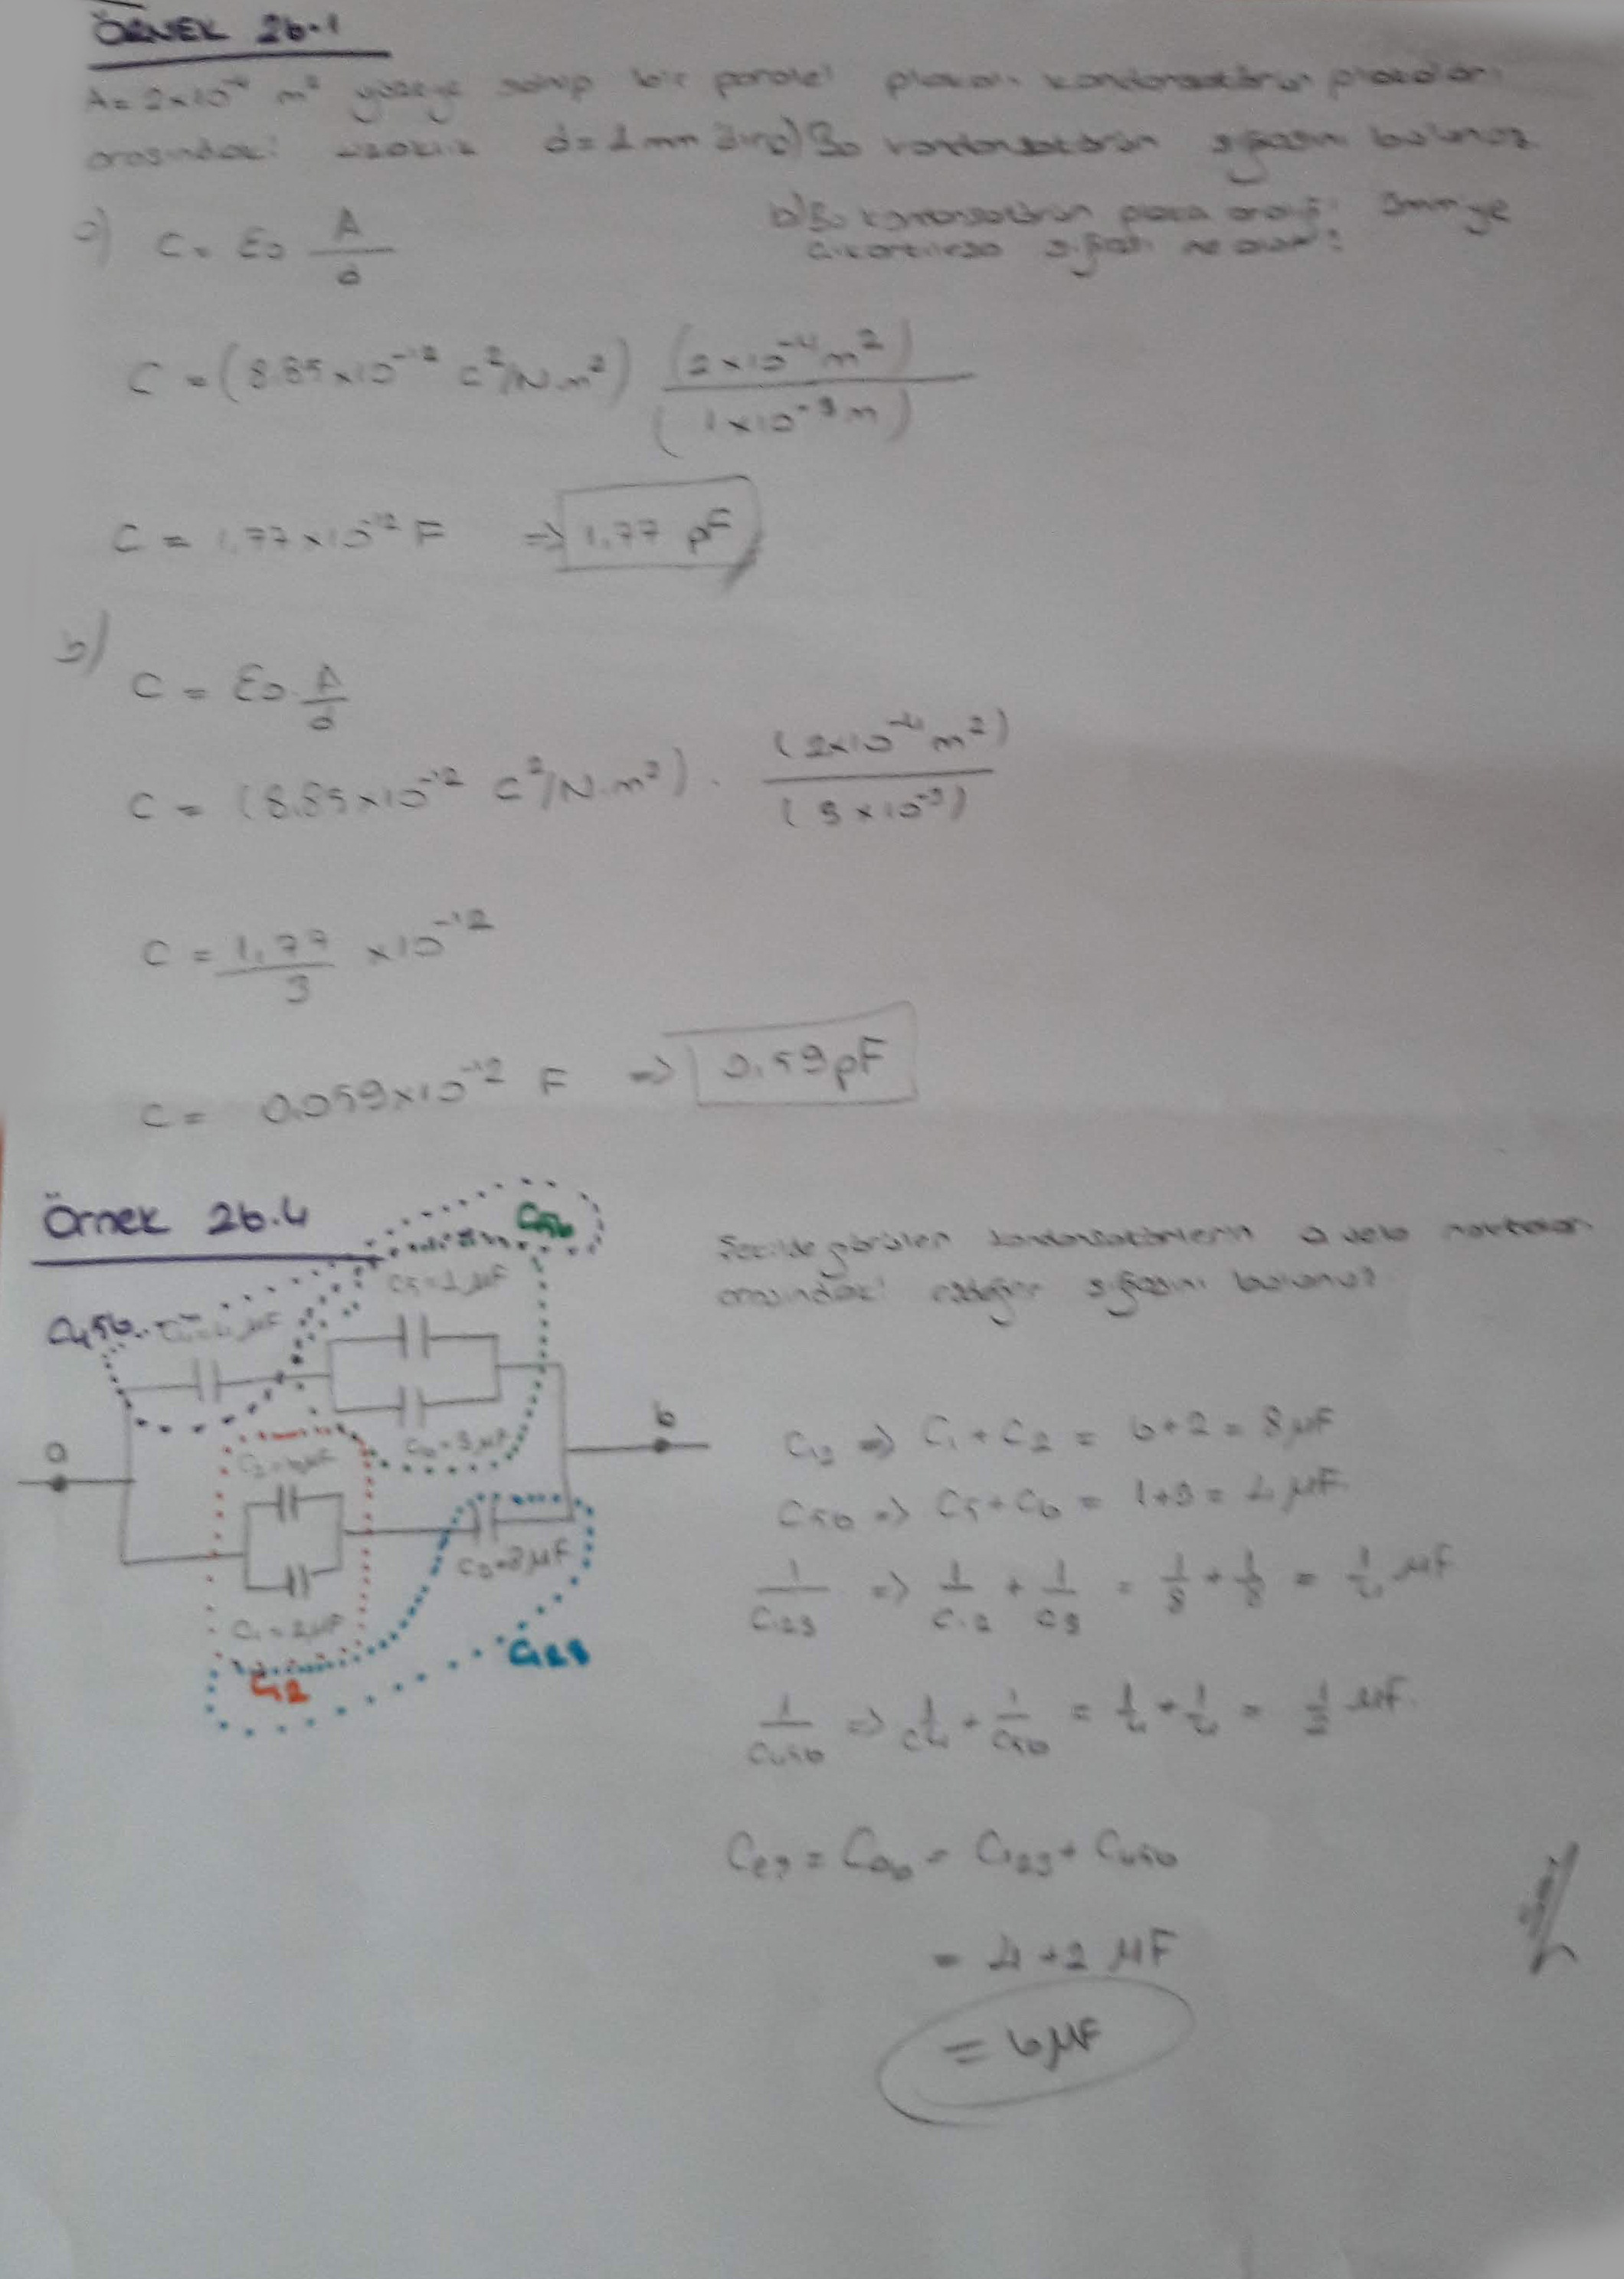 ÖRNEK 26.1
A = 2x10⁻⁴ m² yüzeye sahip bir paralel plakalı kondansatörün plakaları
arasındaki uzaklık d = 1 mm dir. a) Bu kondansatörün sığasını bulunuz
b) Bu kondansatörün plaka aralığı 3mm'ye
çıkartılırsa sığası ne olur?
a) C = ε₀ A/d
C = (8.85x10⁻¹² C²/N.m²) (2x10⁻⁴ m²)/(1x10⁻³ m)
C = 1,77x10⁻¹² F => 1,77 pF
b)
C = ε₀. A/d
C = (8.85x10⁻¹² C²/N.m²) . (2x10⁻⁴ m²)/(3x10⁻³)
C = 1,77/3 x10⁻¹²
C = 0.059x10⁻¹² F => 0.59 pF
Örnek 26.4
Şekilde görülen kondansatörlerin a ve b noktaları
arasındaki eşdeğer sığasını bulunuz?
C₅₆
C₅ = 1 µF
C₄₅₆
C₄ = 4 µF
C₆ = 3 µF
a
b
C₃ = 8 µF
C₁ = 2 µF
C₁₂
C₁₂₃
C₁₂ => C₁ + C₂ = 6+2 = 8 µF
C₅₆ => C₅ + C₆ = 1+3 = 4 µF.
1/C₁₂₃ => 1/C₁₂ + 1/C₃ = 1/8 + 1/8 = 1/4 µF
1/C₄₅₆ => 1/C₄ + 1/C₅₆ = 1/4 + 1/4 = 1/2 µF.
Ceş = Cab = C₁₂₃ + C₄₅₆
= 4+2 µF
= 6 µF